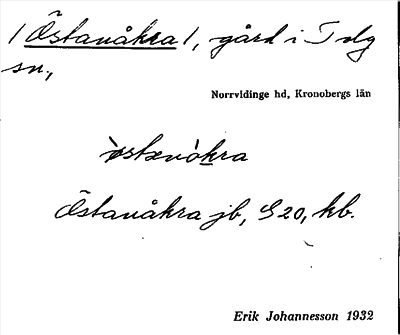 /Östanåkra/, gård i Tolg
sn,
Norrvidinge hd, Kronobergs län
östanåkra
Östanåkra jb, G20, kb.
Erik Johannesson 1932